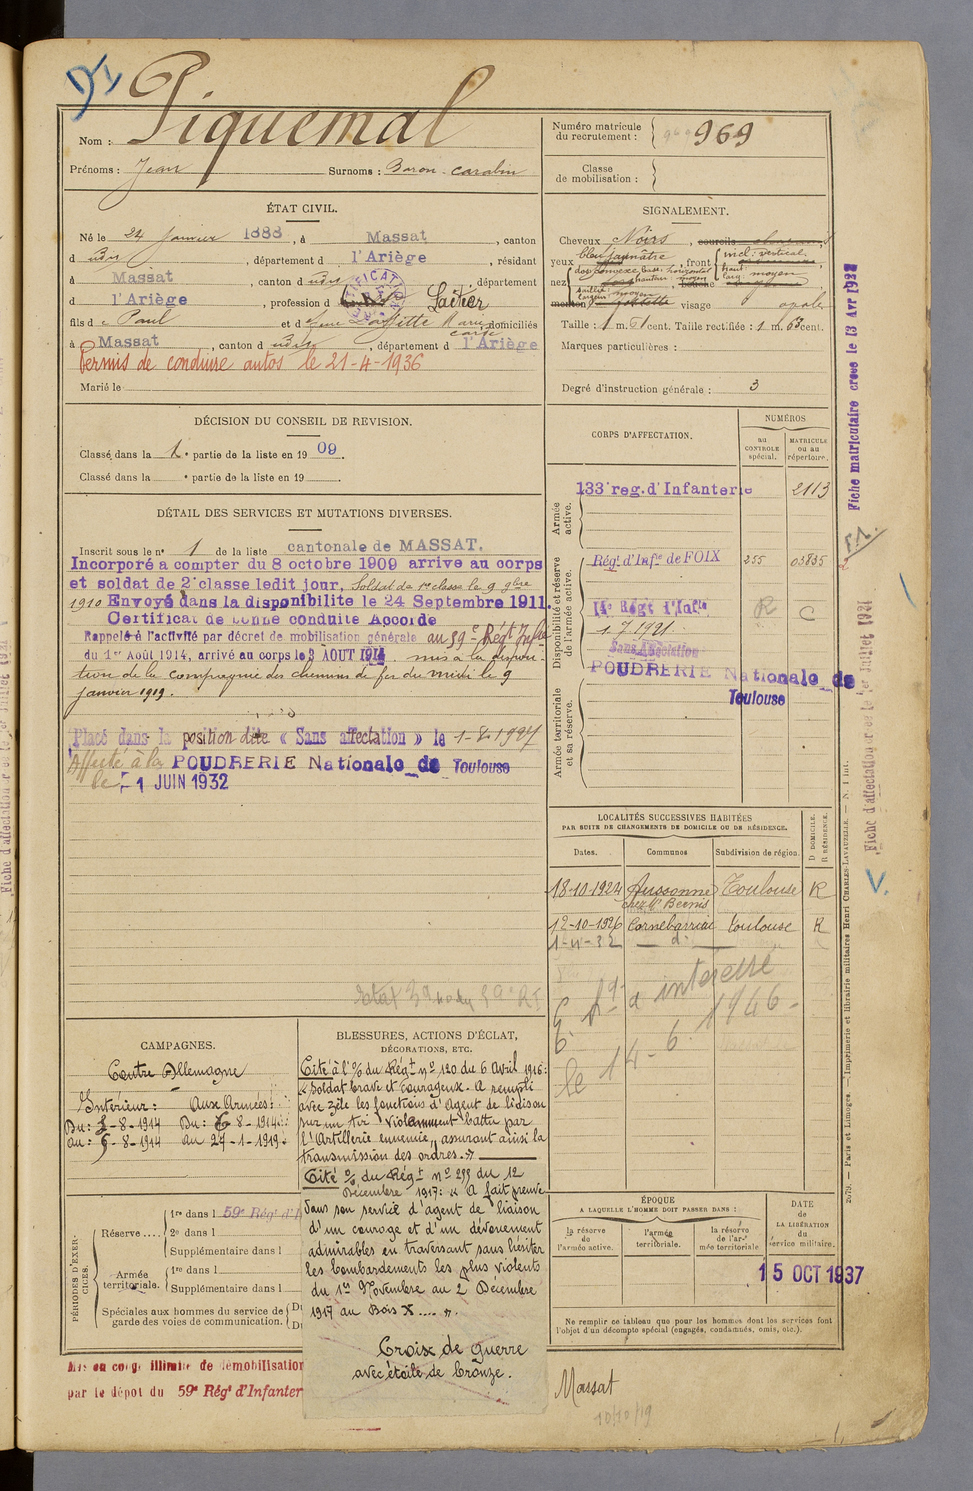 Nom : Piquemal
Prénoms : Jean Surnoms : Baron - carabin
Numéro matricule
du recrutement : 969
Classe
de mobilisation :
ÉTAT CIVIL.
Né le 24 Janvier 1888, à Massat, canton
d udit, département d l'Ariège, résidant
à Massat, canton d udit, département
d l'Ariège, profession d Laitier
fils de Paul et d Laffitte Marie domiciliés
à Massat, canton d udit, département d l'Ariège
Permis de conduire autos le 21-4-1936
Marié le
SIGNALEMENT.
Cheveux Noirs, sourcils
yeux bleu jaunâtre, front incl: verticale
haut larg moyen
nez dos convexe base: horizontal
menton visage ovale
Taille : 1 m. 61 cent. Taille rectifiée : 1 m. 63 cent.
Marques particulières :
Degré d'instruction générale : 3
DÉCISION DU CONSEIL DE REVISION.
Classé dans la 1e partie de la liste en 1909.
Classé dans la e partie de la liste en 19 .
DÉTAIL DES SERVICES ET MUTATIONS DIVERSES.
Inscrit sous le n° 1 de la liste cantonale de MASSAT.
Incorporé a compter du 8 octobre 1909 arrive au corps
et soldat de 2e classe ledit jour, Soldat de 1re classe le 9 9bre
1910 Envoyé dans la disponibilite le 24 Septembre 1911.
Certificat de bonne conduite Accordé
Rappelé à l'activité par décret de mobilisation générale au 59e Régt Infie
du 1er Août 1914, arrivé au corps le 3 AOUT 1914. mis à la disposi-
tion de la compagnie des chemins de fer du midi le 9
janvier 1919.
Placé dans la position dite « Sans affectation » le 1-2-1927
Affecté à la POUDRERIE Nationale de Toulouse
le 1 JUIN 1932
CORPS D'AFFECTATION.
NUMÉROS
au
CONTROLE
spécial.
MATRICULE
ou au
répertoire.
Armée
active.
133e reg. d'Infanterie 2113
Disponibilité et réserve
de l'armée active.
Régt d'Infie de FOIX 255 03835
14e Régt d'Infie R C
1.7.1921.
Sans Affectation
POUDRERIE Nationale de
Toulouse
Armée territoriale
et sa réserve.
LOCALITÉS SUCCESSIVES HABITÉES
PAR SUITE DE CHANGEMENTS DE DOMICILE OU DE RÉSIDENCE.
Dates. Communes Subdivision de région. D DOMICILE. R RÉSIDENCE.
18-10-1924 Aussonne Toulouse R
chez Mr Bernis
12-10-1926 Cornebarrieu Toulouse R
1-4-32 d°
a interessé
le 14-6-1946-
CAMPAGNES.
Contre Allemagne
Intérieur : Aux Armées :
Du : 3-8-1914 Du : 6-8-1914
au : 5-8-1914 au 27-1-1919
BLESSURES, ACTIONS D'ÉCLAT,
DÉCORATIONS, ETC.
Cité à l'O/ du Régt n° 120 du 6 Avril 1916 :
« Soldat brave et courageux. A rempli
avec zèle les fonctions d'Agent de liaison
sur un tir violemment battu par
l'Artillerie ennemie, assurant ainsi la
transmission des ordres. »
Cité O/ du Régt n° 255 du 12
Décembre 1917 : « A fait preuve
dans son service d'agent de liaison
d'un courage et d'un dévouement
admirables en traversant sans hésiter
les bombardements les plus violents
du 1er Novembre au 2 Décembre
1917 au Bois X.... ».
Croix de guerre
avec étoile de bronze.
PÉRIODES D'EXER-
CICES.
Réserve....
1re dans l 59e Régt d'I
2e dans l
Supplémentaire dans l
Armée
territoriale.
1re dans l
Supplémentaire dans l
Spéciales aux hommes du service de
garde des voies de communication.
Mis en congé illimité de démobilisation
par le dépôt du 59e Régt d'Infanter
ÉPOQUE
A LAQUELLE L'HOMME DOIT PASSER DANS :
la réserve
de
l'armée active.
l'armée
territoriale.
la réserve
de l'ar-
mée territoriale
DATE
de
LA LIBÉRATION
du
service militaire.
15 OCT 1937
Ne remplir ce tableau que pour les hommes dont les services font
l'objet d'un décompte spécial (engagés, condamnés, omis, etc.).
Massat
10/10/19
Fiche matriculaire créée le 13 Avr 1932
Fiche d'affectation créée le 1er Juillet 1921
2679. — Paris et Limoges. — Imprimerie et librairie militaires Henri CHARLES-LAVAUZELLE. — N. 1 Int.